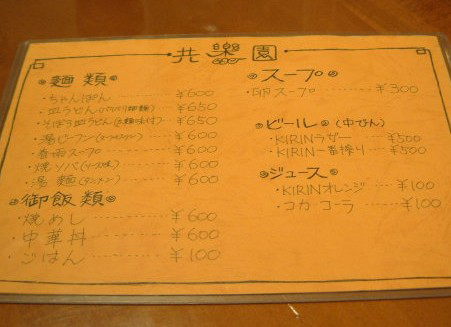 共樂園
麵類
・ちゃんぽん ¥600
・皿うどん(パリパリ細麺) ¥650
・そぼろ皿うどん ¥650
・湯ビーフン ¥600
・春雨スープ ¥600
・焼ソバ(ソース味) ¥600
・湯麺(タンメン) ¥600
御飯類
・焼めし ¥600
・中華丼 ¥600
・ごはん ¥100
スープ
・卵スープ ¥300
ビール(中びん)
・KIRINラガー ¥500
・KIRIN一番搾り ¥500
ジュース
・KIRINオレンジ ¥100
・コカコーラ ¥100